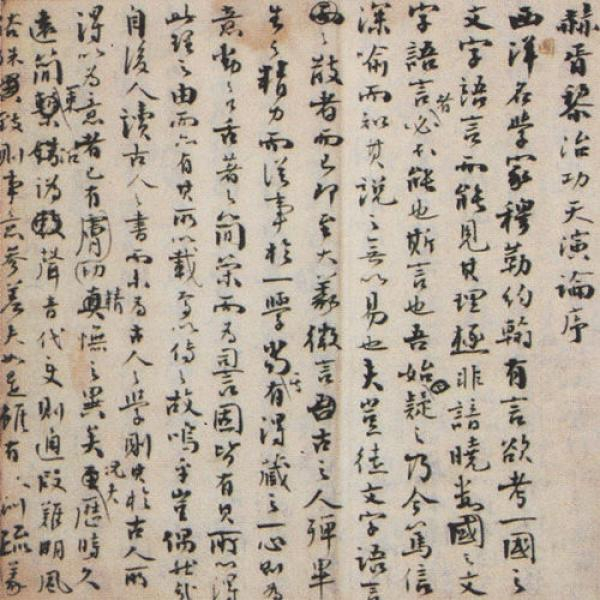 赫胥黎治功天演論序
西洋名學家穆勒約翰有言欲考一國之
文字語言而能見其理極非諳曉數國之文
字語言者必不能也斯言也吾始疑之乃今篤信
深喻而知其說之無以易也夫豈徒文字語言
之散者而已即至大義微言古之人殫畢
生之精力而從事於一學當其有得藏之一心則為
意動之口舌著之簡策而為詞固皆有其所以得
此理之由而亦有其所以載焉以傳之故嗚乎豈偶然哉
自後人讀古人之書而未為古人之學則其於古人所
得以為意者已有膚切精真憮之異矣更況夫歷時久
遠簡沿訛聲音代變則通叚難明風
俗殊則事意參差夫如是雖有訓疏義